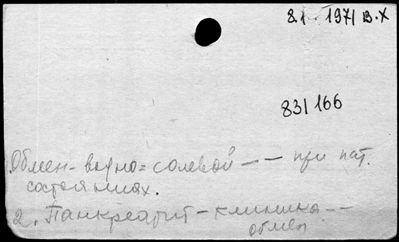 8.1 - 1971 В.Х
831166
Обмен-водно=солевой - - при пат.
состояниях.
2. Панкреатит - клиника - -
обмен